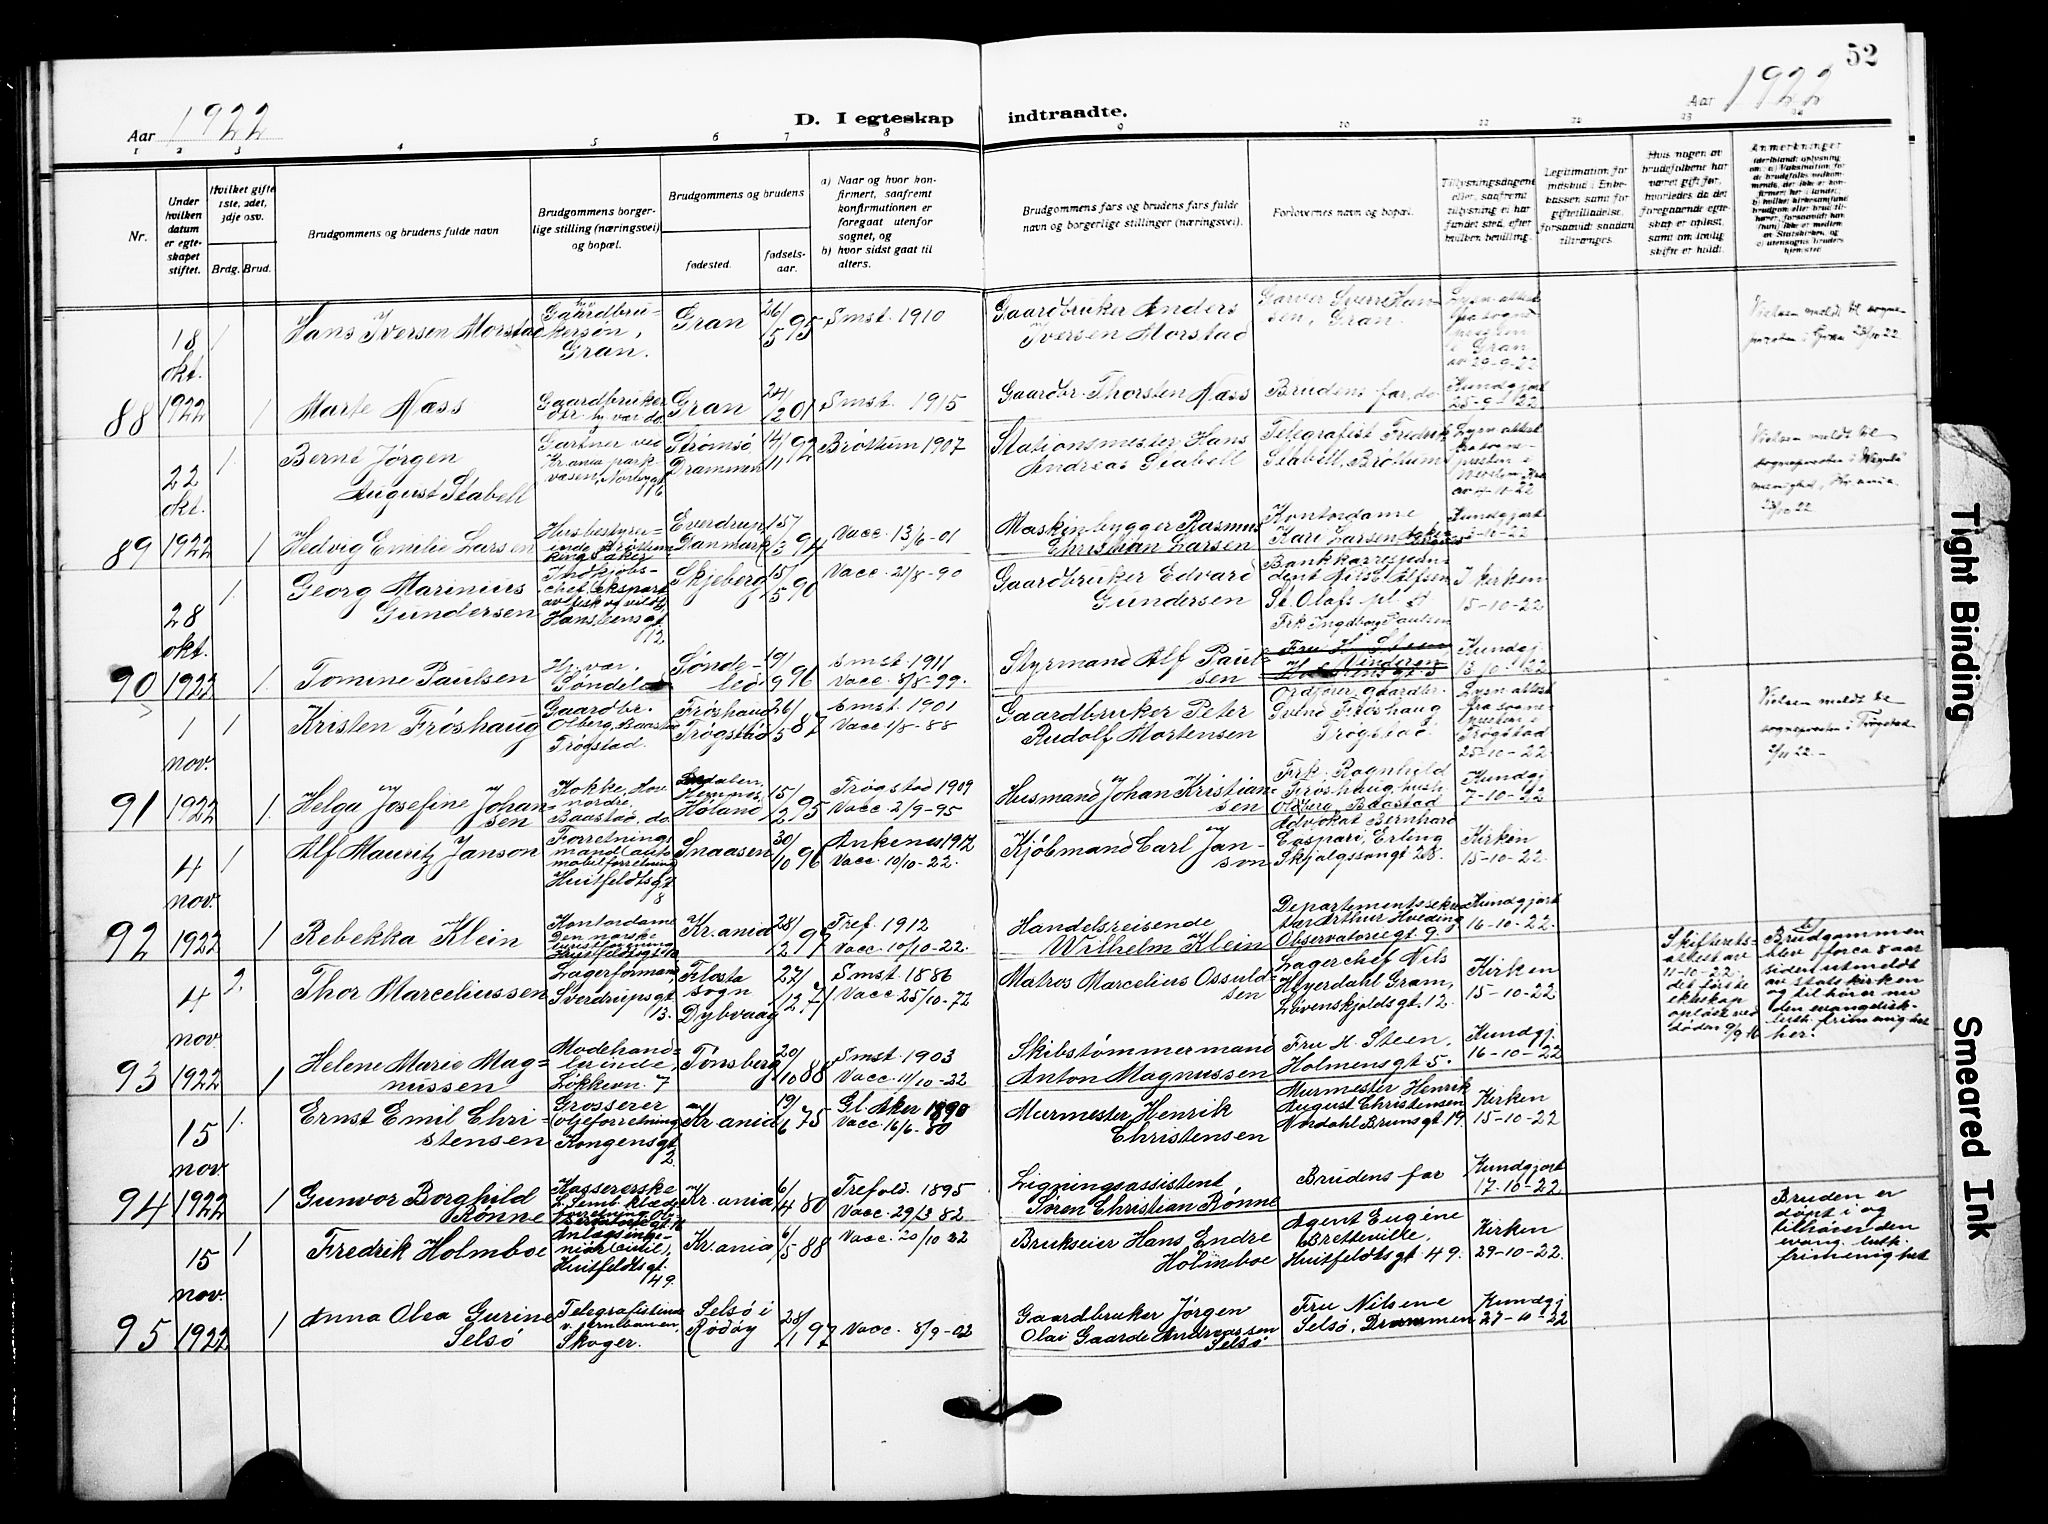 52
Aar 1922
D. I egteskap indtraadte.
Aar 1922
1 2 3 4 5 6 7 8 9 10 11 12 13 14
Nr.
Under hvilken datum er egteskapet stiftet.
Hvilket gifte 1ste, 2det, 3dje osv.
Brdg. Brud.
Brudgommens og brudens fulde navn
Brudgommens borgerlige stilling (næringsvei) og bopæl.
Brudgommens og brudens
fødested.
fødselsaar.
a) Naar og hvor konfirmert, saafremt konfirmationen er foregaat utenfor sognet, og
b) hvor sidst gaat til alters.
Brudgommens fars og brudens fars fulde navn og borgerlige stillinger (næringsvei).
Forlovernes navn og bopæl.
Tillysningsdagene eller, saafremt tillysning ei har fundet sted, efter hvilken bevilling.
Legitimation for indskud i Enkekassen samt for giftetilladelse, forsaavidt saadan tiltrænges.
Hvis nogen av brudefolkene har været gift før, hvorledes da det foregaaende egteskap er opløst samt om lovlig skifte er holdt.
Anmerkninger
18 okt. 1 Hans Iversen Morstad Gaardbrukersøn, Gran. Gran 26/5 95 Smst. 1910 Gaardbruker Anders Iversen Morstad Garver Sverre Hansen, Gran. Lysn.attest fra sognepresten i Gran av 29-9-22
Vielsen meldt til sognepresten i Gran 23/10 22
88 1922 1 Marte Næss Gaardbruker Gran 24/12 01 Smst. 1915 Gaardbr. Thorsten Næss Brudens far, do. Kundgjort 25-9-22
22 okt. 1 Bernt Jørgen August Stabell Gartner ved Kr.ania parkvæsen, Strømsø Drammen 14/11 92 Brøttum 1907 Stationsmester Hans Andreas Stabell Telegrafist Fredrik Stabell, Brøttum Lysn.attest fra sognepresten i
Vielsen meldt til sognepresten i menighed, Kr.ania. 23/10 22
89 1922 1 Hedvig Emilie Larsen Husbestyrerinde Everdrup Danmark 15/3 94 Vacc. 13/6-01 Maskinbygger Rasmus Christian Larsen Kontordame Kari Larsen Kundgjort
28 okt. 1 Georg Marinius Gundersen Indkjøbschef, Skjeberg 15/5 90 Vacc. 21/8-90 Gaardbruker Edvard Gundersen St. Olafs pl. Frk Ingeborg Paulsen I kirken 15-10-22
90 1922 1. Tomine Paulsen Hj. var. Søndeled Søndeled 19/9 96 Smst. 1911 Vacc. 8/8-99. Styrmand Alf Paulsen Fru H. Steen Kundgj. 13/10-22
1 nov. 1 Kristen Frøshaug Gaardbr. Oldberg, Baastad Trøgstad. Frøshaug Trøgstad 26/5 87 Smst. 1901 Vacc 1/8-88 Gaardbruker Peter Rudolf Mortensen Ordfører, gaardbr. Svend Frøshaug Trøgstad. Lysn.attest fra sognepresten i Trøgstad 25-10-22
Vielsen meldt til sognepresten i Trøgstad 2/11 22.
91 1922 1. Helga Josefine Johansen Kokke, Hov nordre, Baastad, do. Hemnes, Høland 15/2 95 Trøgstad 1909 Vacc 2/9-95 Husmand Johan Kristiansen Frk. Ragnhild Frøshaug, Oldberg Baastad Kundgj 7-10-22
4 nov. 1 Alf Mauritz Janson Forretningsmand (automobilforretning) Huitfeldtsgt 8 Snaasen 30/10 96 Ankenes 1912 Vacc. 10/10-22. Kjøbmand Carl Janson Advokat Bernhard Caspari, Erling Skjalgssonsgt 28. Kirken 15-10-22.
92 1922 1 Rebekka Klein Kontordame Kr.ania 28/12 97 Tref. 1912 Vacc. 10/10-22. Handelsreisende Wilhelm Klein Departementssekretær Arthur Hveding Observatoriegt. 9. Kundgjort 16-10-22.
4 nov. 2. Thor Marceliussen Lagerformand, Sverdrupsgt. 13. Flosta sogn Dybvaag 27/12 71 Smst. 1886 Vacc 25/10-72 Matros Marcelius Ossuldsen Lagerchef Nils Heyerdahl Gram, Løvenskjoldsgt. 12. Kirken 15-10-22.
Skifteretsattest av 11-10-22. det første ekteskap opløst ved døden 9/9 16
Brudgommen blev for ca 8 aar siden utmeldt av statskirken og tilhører nu den evangelisk-luth. frimenighet her.
93 1922 1 Helene Marie Magnussen Modehandlerinde, Løkkevn. 7 Tønsberg 20/10 88 Smst. 1903 Vacc. 11/10-22 Skibstømmermand Anton Magnussen Fru H. Steen, Holmensgt 5. Kundgj. 16-10-22
15 nov. 1. Ernst Emil Christensen Grosserer (oljeforretning) Kongensgt 2. Kr.ania 19/6 75 Gl. Aker 1890 Vacc. 16/6-80 Murmester Henrik Christensen Murmester Henrik August Christensen Nordahl Brunsgt 19. Kirken 15-10-22
94 1922 1 Gunvor Borghild Rønne Kassererske Kr.ania 6/4 80 Trefold. 1895 Vacc. 29/3 82 Ligningsassistent Søren Christian Rønne Brudens far Kundgjort 17-10-22.
15 nov. 1 Fredrik Holmboe Anlægsingeniør (civil), Huitfeldtsgt. 49. Kr.ania 6/5 88 Vacc. 20/10 22 Brukseier Hans Endre Holmboe Agent Eugéne Bretteville, Huitfeldtsgt 49. Kirken 29-10-22.
Bruden er døpt i og tilhører den evang. luth. frimenighet
95 1922 1 Anna Olea Gurine Selsö Telegrafistinde v. jernbanen, Skoger. Selsö i Rødøy 28/1 97 Vacc. 8/9-02 Gaardbruker Jørgen Olai Gaarde Andreassen Selsö Fru Nilsene Selsö, Drammen Kundgj 27-10-22
Tight Binding
Smeared Ink